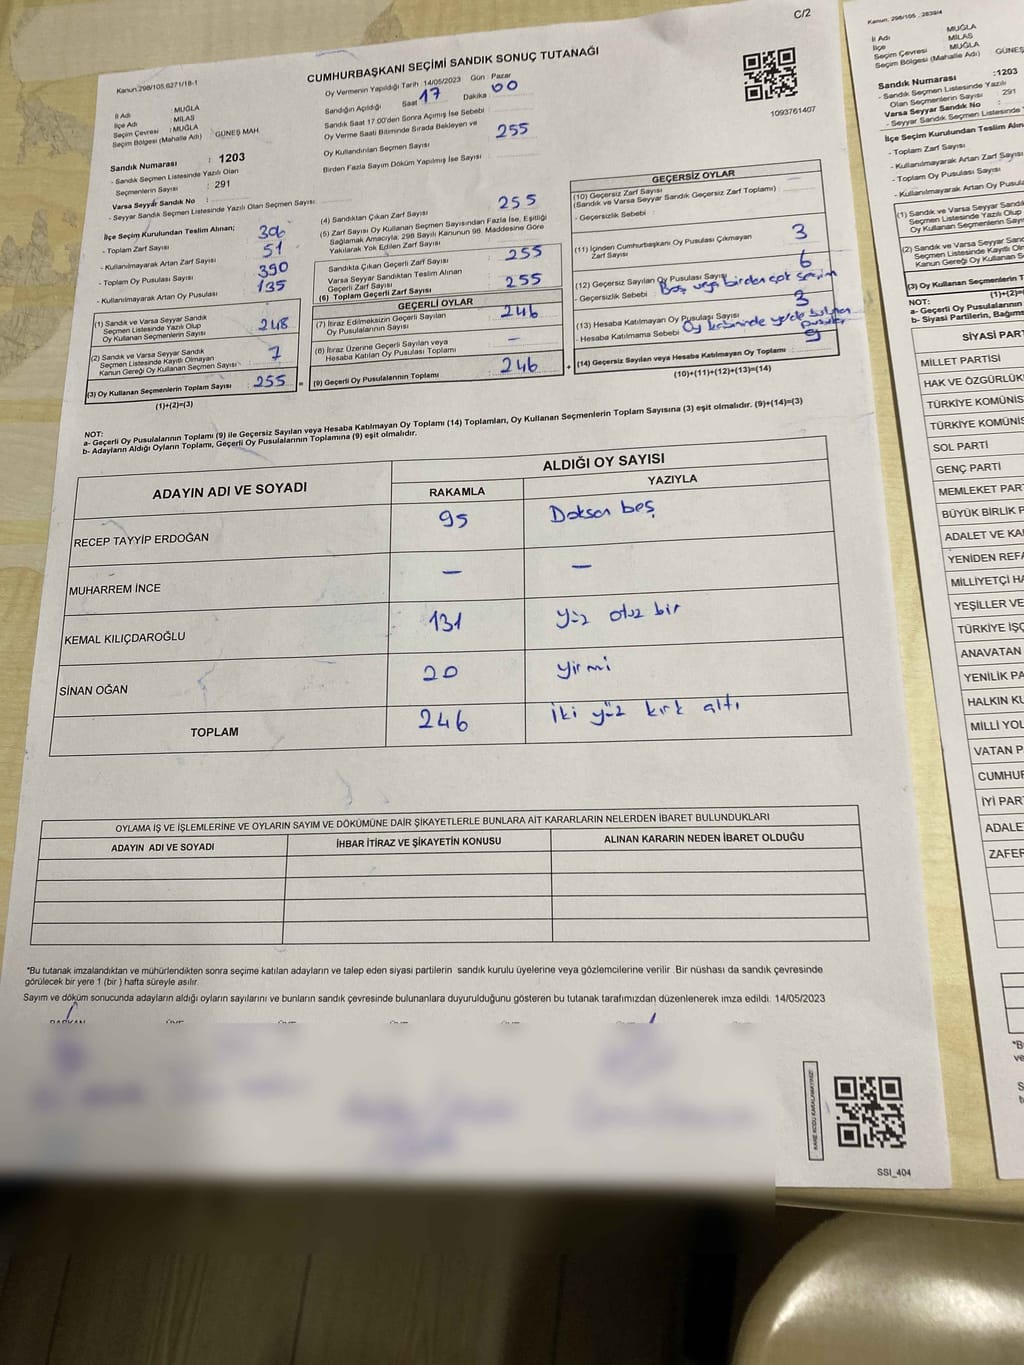 C/2
Kanun:298/105,6271/18-1
CUMHURBAŞKANI SEÇİMİ SANDIK SONUÇ TUTANAĞI
İl Adı : MUĞLA
İlçe Adı : MİLAS
Seçim Çevresi : MUĞLA
Seçim Bölgesi (Mahalle Adı) : GÜNEŞ MAH.
Sandık Numarası : 1203
- Sandık Seçmen Listesinde Yazılı Olan
Seçmenlerin Sayısı : 291
Varsa Seyyar Sandık No :
- Seyyar Sandık Seçmen Listesinde Yazılı Olan Seçmen Sayısı:
İlçe Seçim Kurulundan Teslim Alınan;
- Toplam Zarf Sayısı 306
- Kullanılmayarak Artan Zarf Sayısı 51
- Toplam Oy Pusulası Sayısı 390
- Kullanılmayarak Artan Oy Pusulası 135
(1) Sandık ve Varsa Seyyar Sandık
Seçmen Listesinde Yazılı Olup
Oy Kullanan Seçmenlerin Sayısı 248
(2) Sandık ve Varsa Seyyar Sandık
Seçmen Listesinde Kayıtlı Olmayan
Kanun Gereği Oy Kullanan Seçmen Sayısı 7
(3) Oy Kullanan Seçmenlerin Toplam Sayısı 255 =
(1)+(2)=(3)
Oy Vermenin Yapıldığı Tarih :14/05/2023 Gün : Pazar
Sandığın Açıldığı Saat 17 Dakika 00
Sandık Saat 17.00'den Sonra Açılmış İse Sebebi :
Oy Verme Saati Bitiminde Sırada Bekleyen ve
Oy Kullandırılan Seçmen Sayısı : 255
Birden Fazla Sayım Döküm Yapılmış İse Sayısı :
(4) Sandıktan Çıkan Zarf Sayısı : 255
(5) Zarf Sayısı Oy Kullanan Seçmen Sayısından Fazla İse, Eşitliği
Sağlamak Amacıyla, 298 Sayılı Kanunun 98. Maddesine Göre
Yakılarak Yok Edilen Zarf Sayısı
Sandıkta Çıkan Geçerli Zarf Sayısı : 255
Varsa Seyyar Sandıktan Teslim Alınan
Geçerli Zarf Sayısı
(6) Toplam Geçerli Zarf Sayısı : 255
GEÇERLİ OYLAR
(7) İtiraz Edilmeksizin Geçerli Sayılan
Oy Pusulalarının Sayısı : 246
(8) İtiraz Üzerine Geçerli Sayılan veya
Hesaba Katılan Oy Pusulası Toplamı : –
(9) Geçerli Oy Pusulalarının Toplamı : 246 +
1093761407
GEÇERSİZ OYLAR
(10) Geçersiz Zarf Sayısı –
(Sandık ve Varsa Seyyar Sandık Geçersiz Zarf Toplamı) :
- Geçersizlik Sebebi :
(11) İçinden Cumhurbaşkanı Oy Pusulası Çıkmayan
Zarf Sayısı : 3
(12) Geçersiz Sayılan Oy Pusulası Sayısı 6
- Geçersizlik Sebebi : Boş veya birden çok seçim
(13) Hesaba Katılmayan Oy Pusulası Sayısı 3
- Hesaba Katılmama Sebebi : Oy kabininde yerde bulunan
pusulalar
(14) Geçersiz Sayılan veya Hesaba Katılmayan Oy Toplamı : 9
(10)+(11)+(12)+(13)=(14)
NOT:
a- Geçerli Oy Pusulalarının Toplamı (9) ile Geçersiz Sayılan veya Hesaba Katılmayan Oy Toplamı (14) Toplamları, Oy Kullanan Seçmenlerin Toplam Sayısına (3) eşit olmalıdır. (9)+(14)=(3)
b- Adayların Aldığı Oyların Toplamı, Geçerli Oy Pusulalarının Toplamına (9) eşit olmalıdır.
ADAYIN ADI VE SOYADI
ALDIĞI OY SAYISI
RAKAMLA YAZIYLA
RECEP TAYYİP ERDOĞAN 95 Doksan beş
MUHARREM İNCE – –
KEMAL KILIÇDAROĞLU 131 Yüz otuz bir
SİNAN OĞAN 20 Yirmi
TOPLAM 246 İki yüz kırk altı
OYLAMA İŞ VE İŞLEMLERİNE VE OYLARIN SAYIM VE DÖKÜMÜNE DAİR ŞİKAYETLERLE BUNLARA AİT KARARLARIN NELERDEN İBARET BULUNDUKLARI
ADAYIN ADI VE SOYADI İHBAR İTİRAZ VE ŞİKAYETİN KONUSU ALINAN KARARIN NEDEN İBARET OLDUĞU
*Bu tutanak imzalandıktan ve mühürlendikten sonra seçime katılan adayların ve talep eden siyasi partilerin sandık kurulu üyelerine veya gözlemcilerine verilir .Bir nüshası da sandık çevresinde
görülecek bir yere 1 (bir ) hafta süreyle asılır.
Sayım ve döküm sonucunda adayların aldığı oyların sayılarını ve bunların sandık çevresinde bulunanlara duyurulduğunu gösteren bu tutanak tarafımızdan düzenlenerek imza edildi. 14/05/2023
BAŞKAN
KARE KODU KARALAMAYINIZ!
SSI_404
Kanun: 298/105 , 2839/4
İl Adı MUĞLA
İlçe MİLAS
Seçim Çevresi MUĞLA
Seçim Bölgesi (Mahalle Adı) GÜNEŞ
Sandık Numarası :1203
- Sandık Seçmen Listesinde Yazılı
Olan Seçmenlerin Sayısı 291
Varsa Seyyar Sandık No :
- Seyyar Sandık Seçmen Listesinde
İlçe Seçim Kurulundan Teslim Alın
- Toplam Zarf Sayısı
- Kullanılmayarak Artan Zarf Sayısı
- Toplam Oy Pusulası Sayısı
- Kullanılmayarak Artan Oy Pusula
(1) Sandık ve Varsa Seyyar Sandı
Seçmen Listesinde Yazılı Olup
Oy Kullanan Seçmenlerin Sayıs
(2) Sandık ve Varsa Seyyar Sand
Seçmen Listesinde Kayıtlı Olm
Kanun Gereği Oy Kullanan S
(3) Oy Kullanan Seçmenlerin T
(1)+(2)=
NOT:
a- Geçerli Oy Pusulalarının
b- Siyasi Partilerin, Bağıms
SİYASİ PART
MİLLET PARTİSİ
HAK VE ÖZGÜRLÜK
TÜRKİYE KOMÜNİS
TÜRKİYE KOMÜNİS
SOL PARTİ
GENÇ PARTİ
MEMLEKET PAR
BÜYÜK BİRLİK P
ADALET VE KA
YENİDEN REFA
MİLLİYETÇİ HA
YEŞİLLER VE
TÜRKİYE İŞÇ
ANAVATAN
YENİLİK PA
HALKIN KU
MİLLİ YOL
VATAN P
CUMHUR
İYİ PAR
ADALE
ZAFER